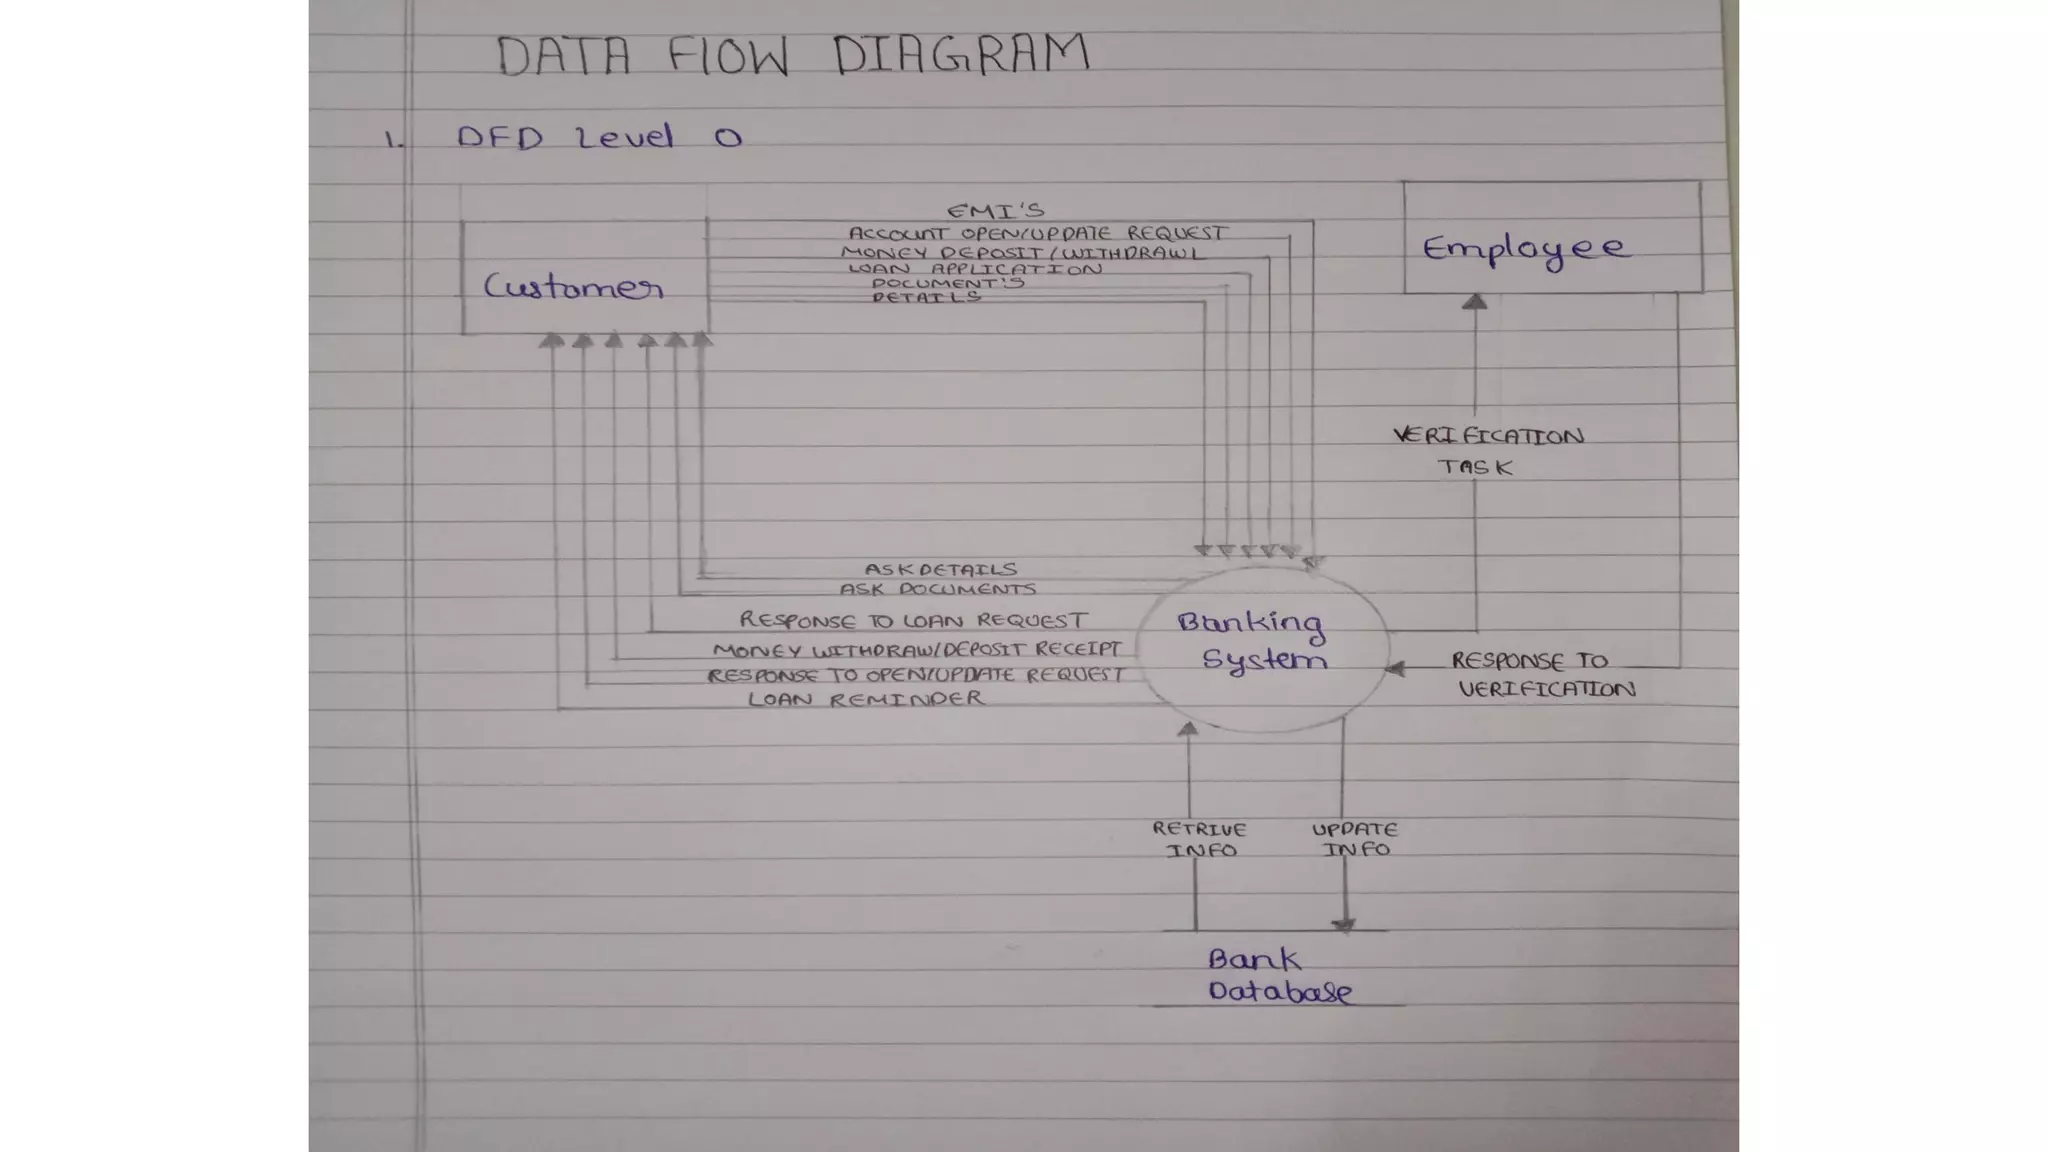 DATA FLOW DIAGRAM
1. DFD Level 0
EMI'S
ACCOUNT OPEN/UPDATE REQUEST
MONEY DEPOSIT/WITHDRAWL
LOAN APPLICATION
DOCUMENT'S
DETAILS
Customer
Employee
VERIFICATION
TASK
ASK DETAILS
ASK DOCUMENTS
RESPONSE TO LOAN REQUEST
MONEY WITHDRAW/DEPOSIT RECEIPT
RESPONSE TO OPEN/UPDATE REQUEST
LOAN REMINDER
Banking
System
RESPONSE TO
VERIFICATION
RETRIVE
INFO
UPDATE
INFO
Bank
Database